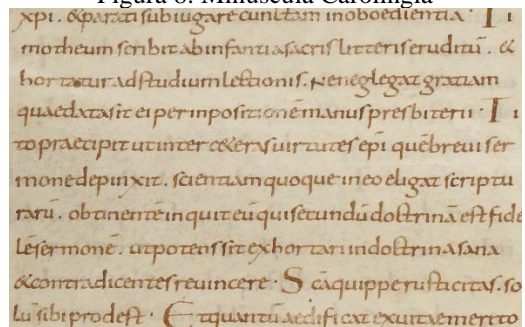 Figura 8: Minúscula Carolíngia
xpi. &parati subiugare cunctam inoboedientia · Ti
motheum scribit ab infantia sacris litteris eruditū. &
hortatur ad studium lectionis. Ne neglegat gratiam
quae data sit ei per inpositionē manus presbiterii · Ti
to praecipit ut inter ceteras uirtutes epi quē breui ser
mone depinxit. scientiam quoque in eo eligat scriptu
rarū. obtinentē inquit eū qui secundū doctrinā est fide
lē sermonē. ut potens sit exhortari in doctrina sana
& contradicentes reuincere · Scā quippe rusticitas. so
lū sibi prodest · Et quantū aedificat ex uitae merito